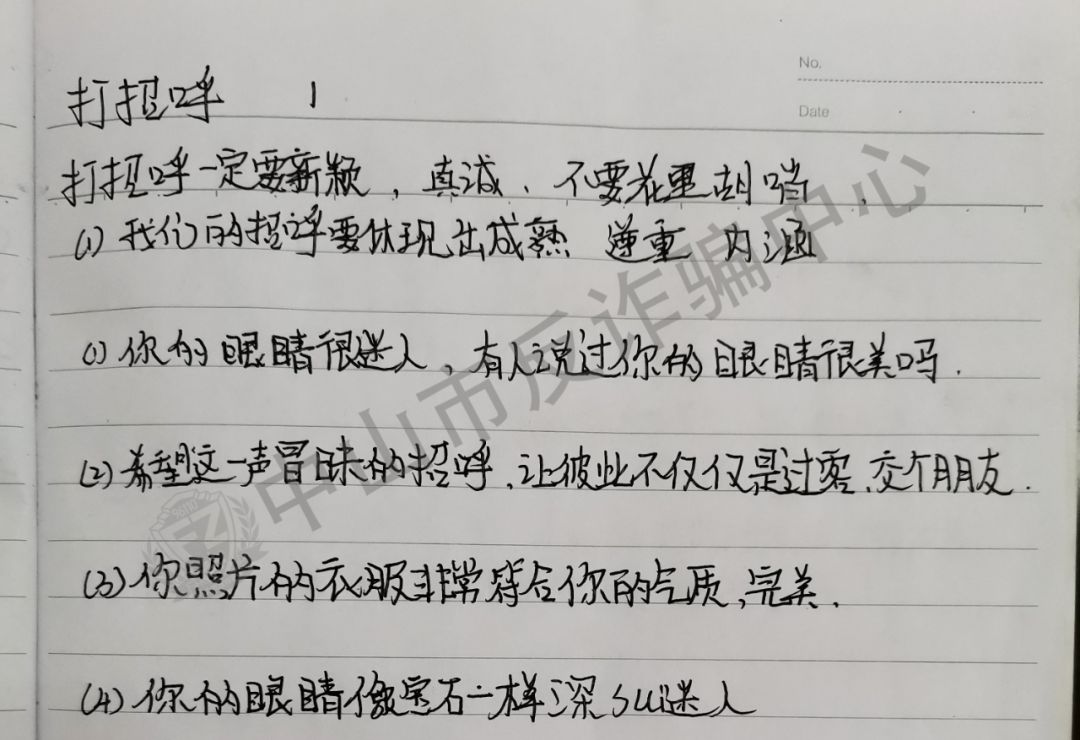 No.
Date
打招呼 1
打招呼一定要新颖，真诚、不要花里胡哨．
(1) 我们的招呼要体现出成熟 重 内涵
(1) 你的眼睛很迷人，有人说过你的眼睛很美吗．
(2) 希望这一声冒昧的招呼，让彼此不仅仅是过客，交个朋友．
(3) 你照片的衣服非常符合你的气质，完美．
(4) 你的眼睛像宝石一样深sui迷人
中山市反诈骗中心